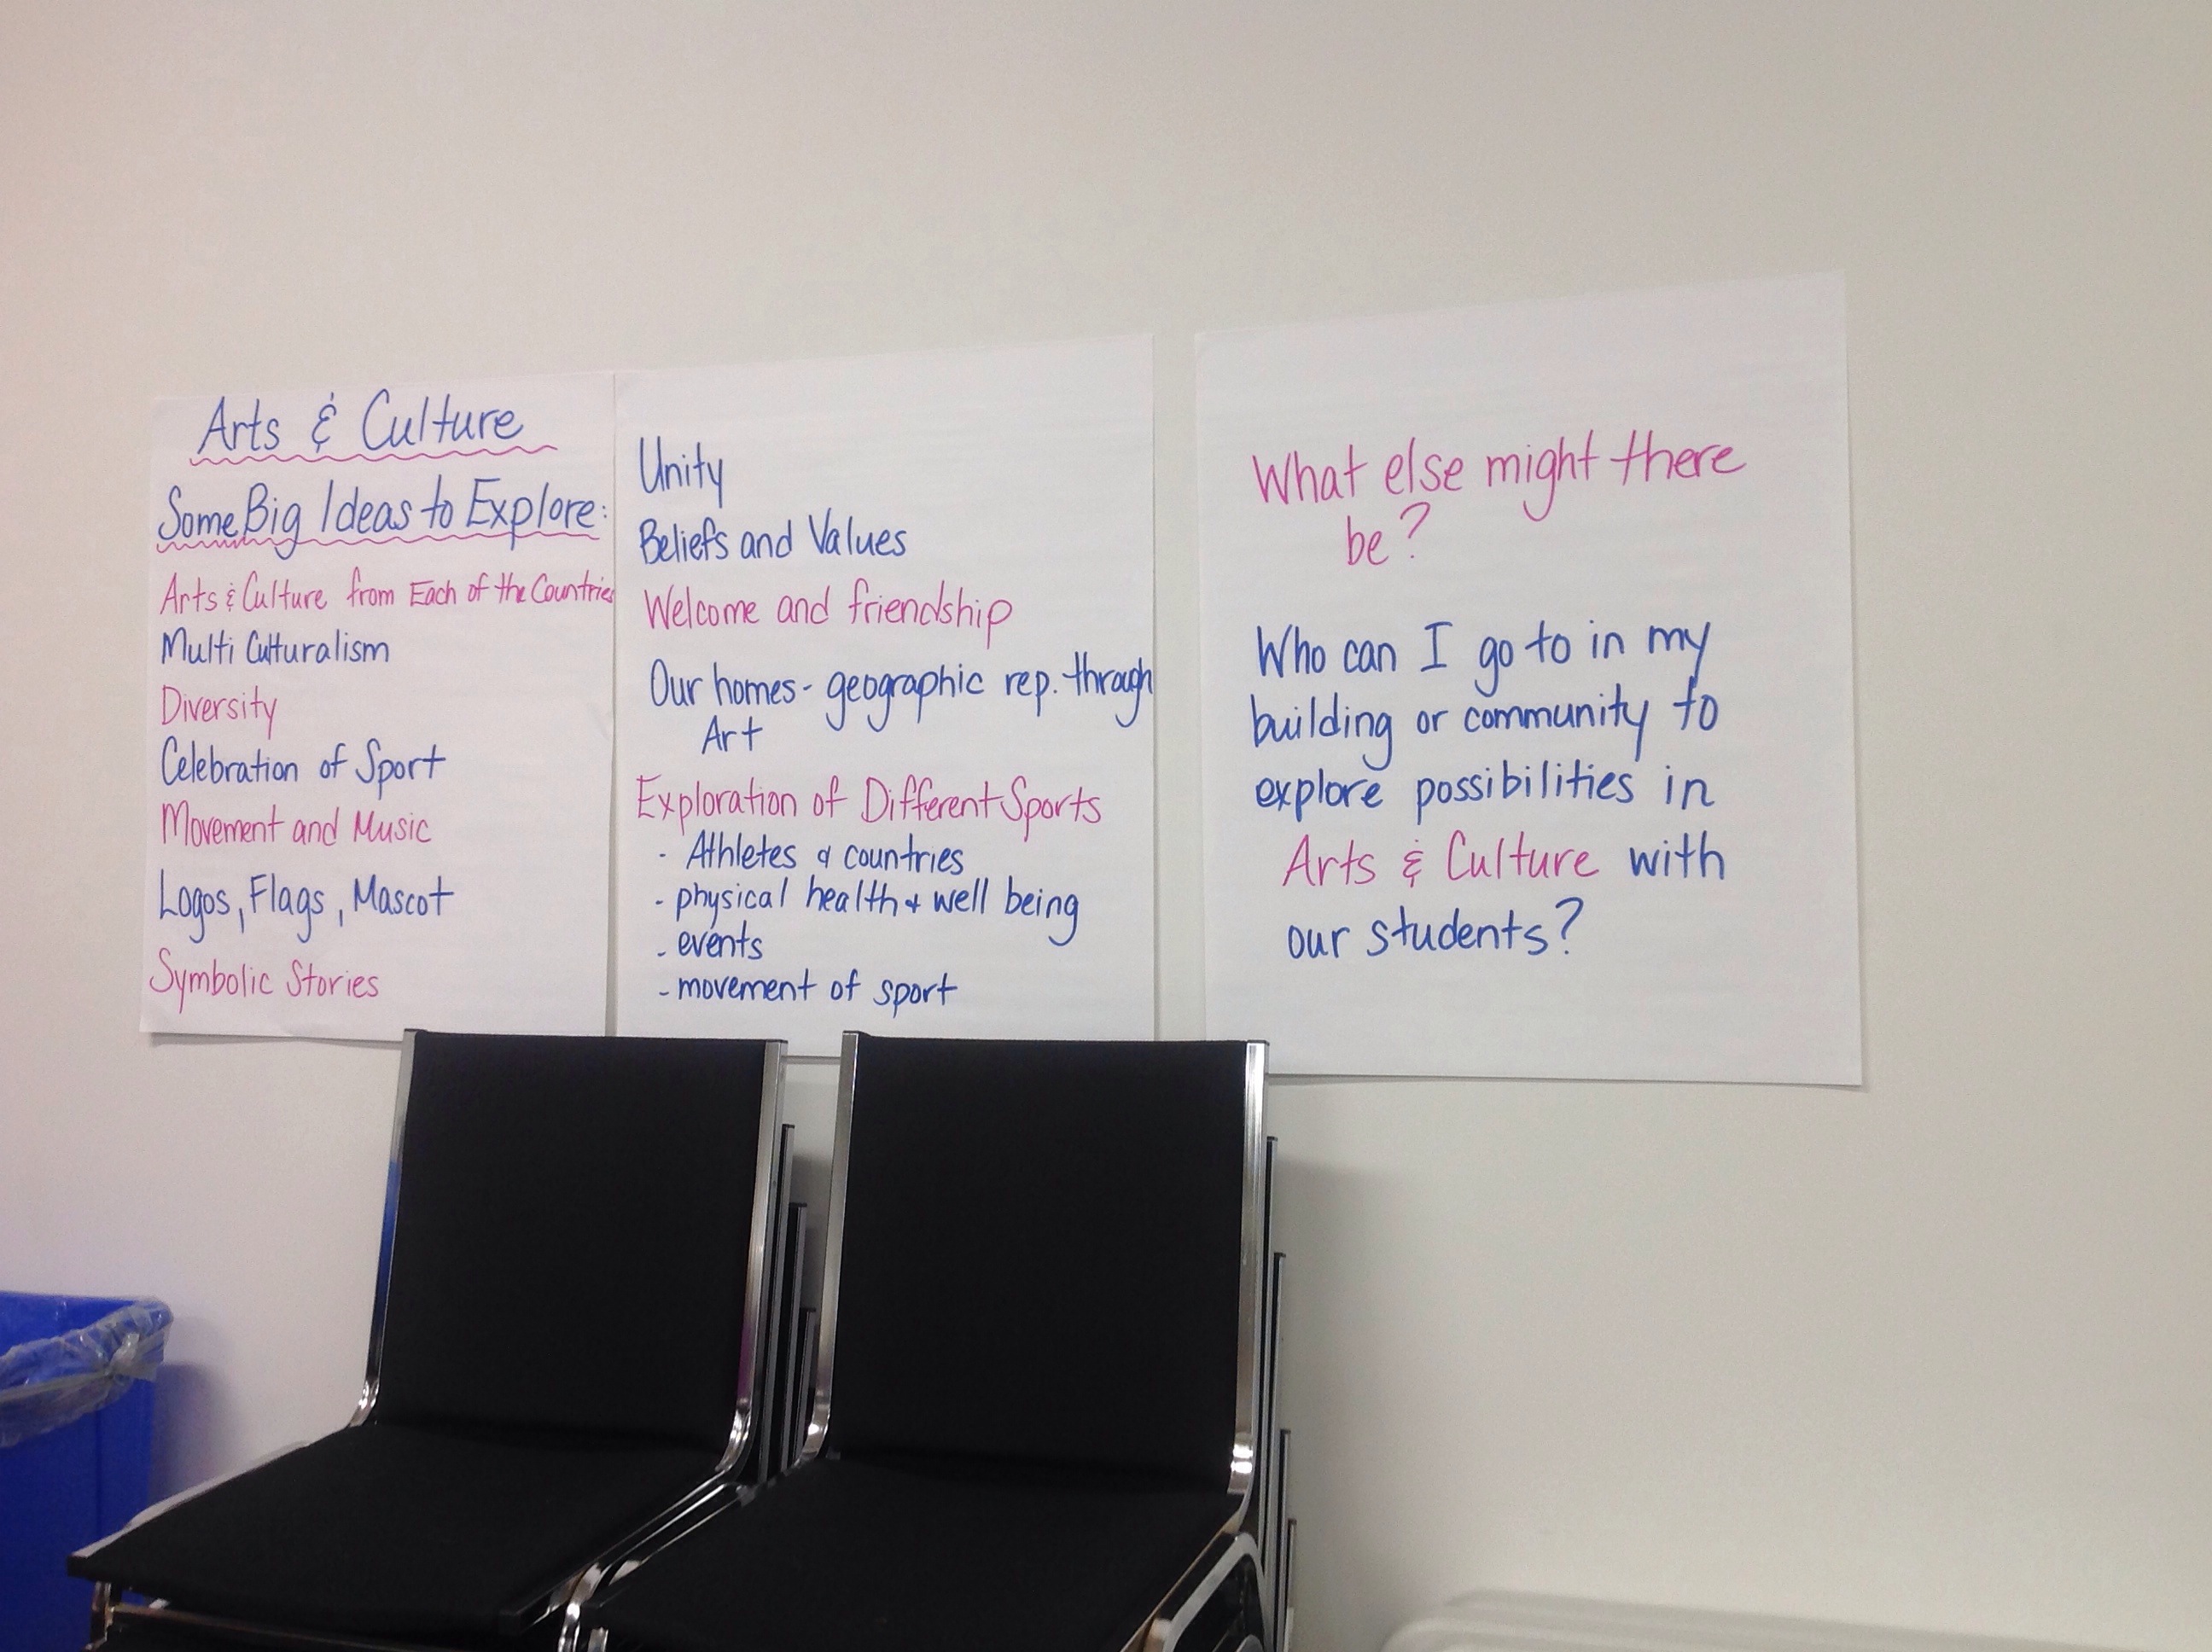 Arts & Culture
Some Big Ideas to Explore:
Arts & Culture from Each of the Countries
Multi Culturalism
Diversity
Celebration of Sport
Movement and Music
Logos, Flags, Mascot
Symbolic Stories
Unity
Beliefs and Values
Welcome and friendship
Our homes - geographic rep. through
Art
Exploration of Different Sports
- Athletes & countries
- physical health & well being
- events
- movement of sport
What else might there
be?
Who can I go to in my
building or community to
explore possibilities in
Arts & Culture with
our students?